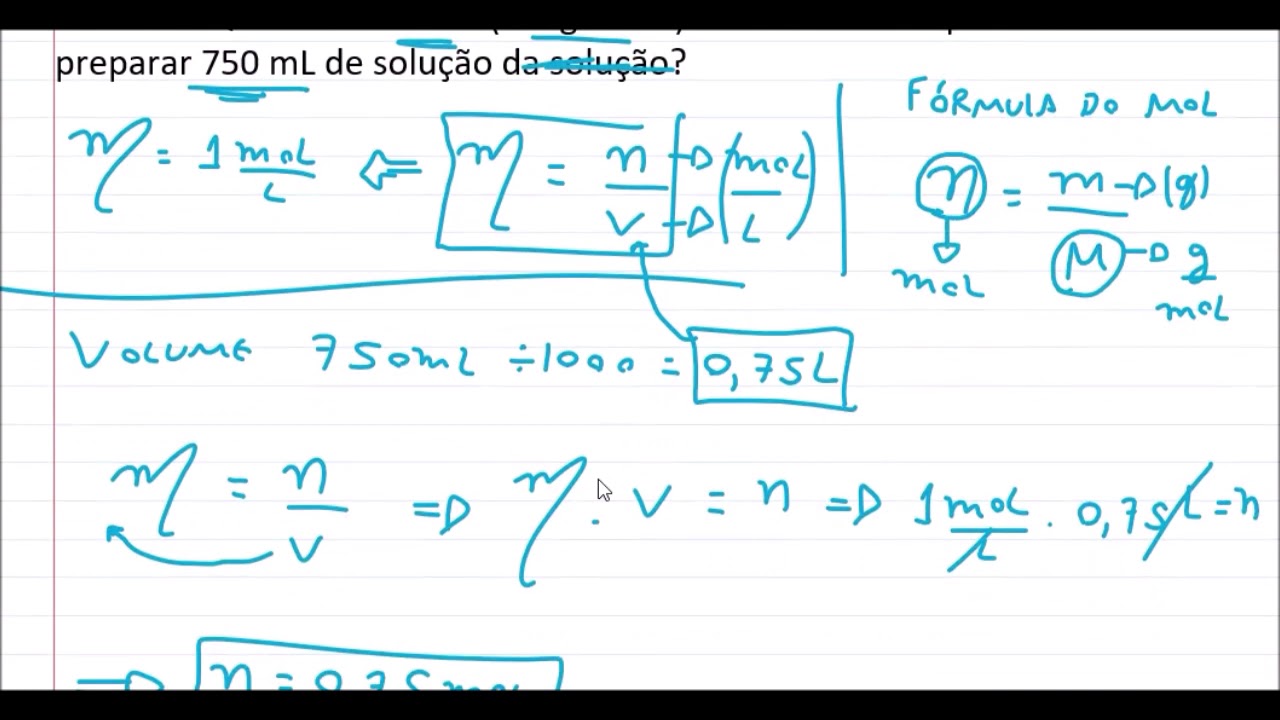 preparar 750 mL de solução da solução?
FÓRMULA DO MOL
m = 1 mol/L ⇐ m = n/V → (mol/L)
n = m → (g)
M → g/mol
mol
VOLUME 750mL ÷1000 = 0,75L
m = n/V ⇒ m . V = n ⇒ 1 mol/L . 0,75L = n
⇒ n = 0,75 mol